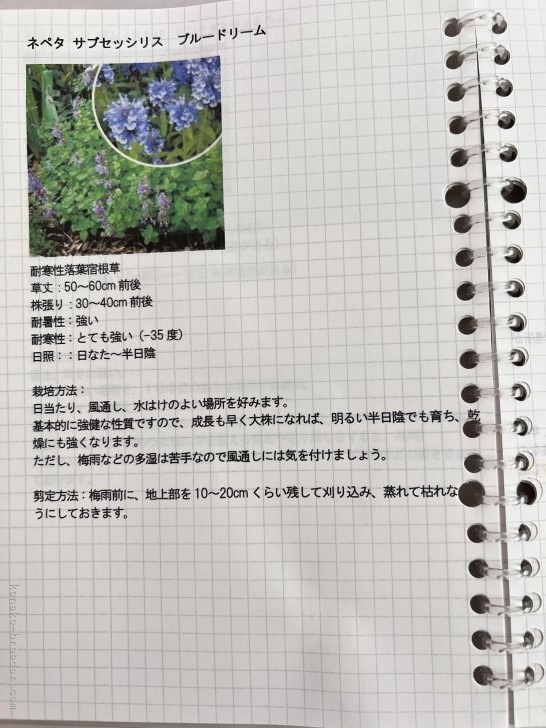 ネペタ サブセッシリス ブルードリーム
耐寒性落葉宿根草
草丈：50～60cm 前後
株張り：30～40cm 前後
耐暑性：強い
耐寒性：とても強い（-35 度）
日照：：日なた～半日陰
栽培方法：
日当たり、風通し、水はけのよい場所を好みます。
基本的に強健な性質ですので、成長も早く大株になれば、明るい半日陰でも育ち、乾
燥にも強くなります。
ただし、梅雨などの多湿は苦手なので風通しには気を付けましょう。
剪定方法：梅雨前に、地上部を 10～20cm くらい残して刈り込み、蒸れて枯れな
うにしておきます。